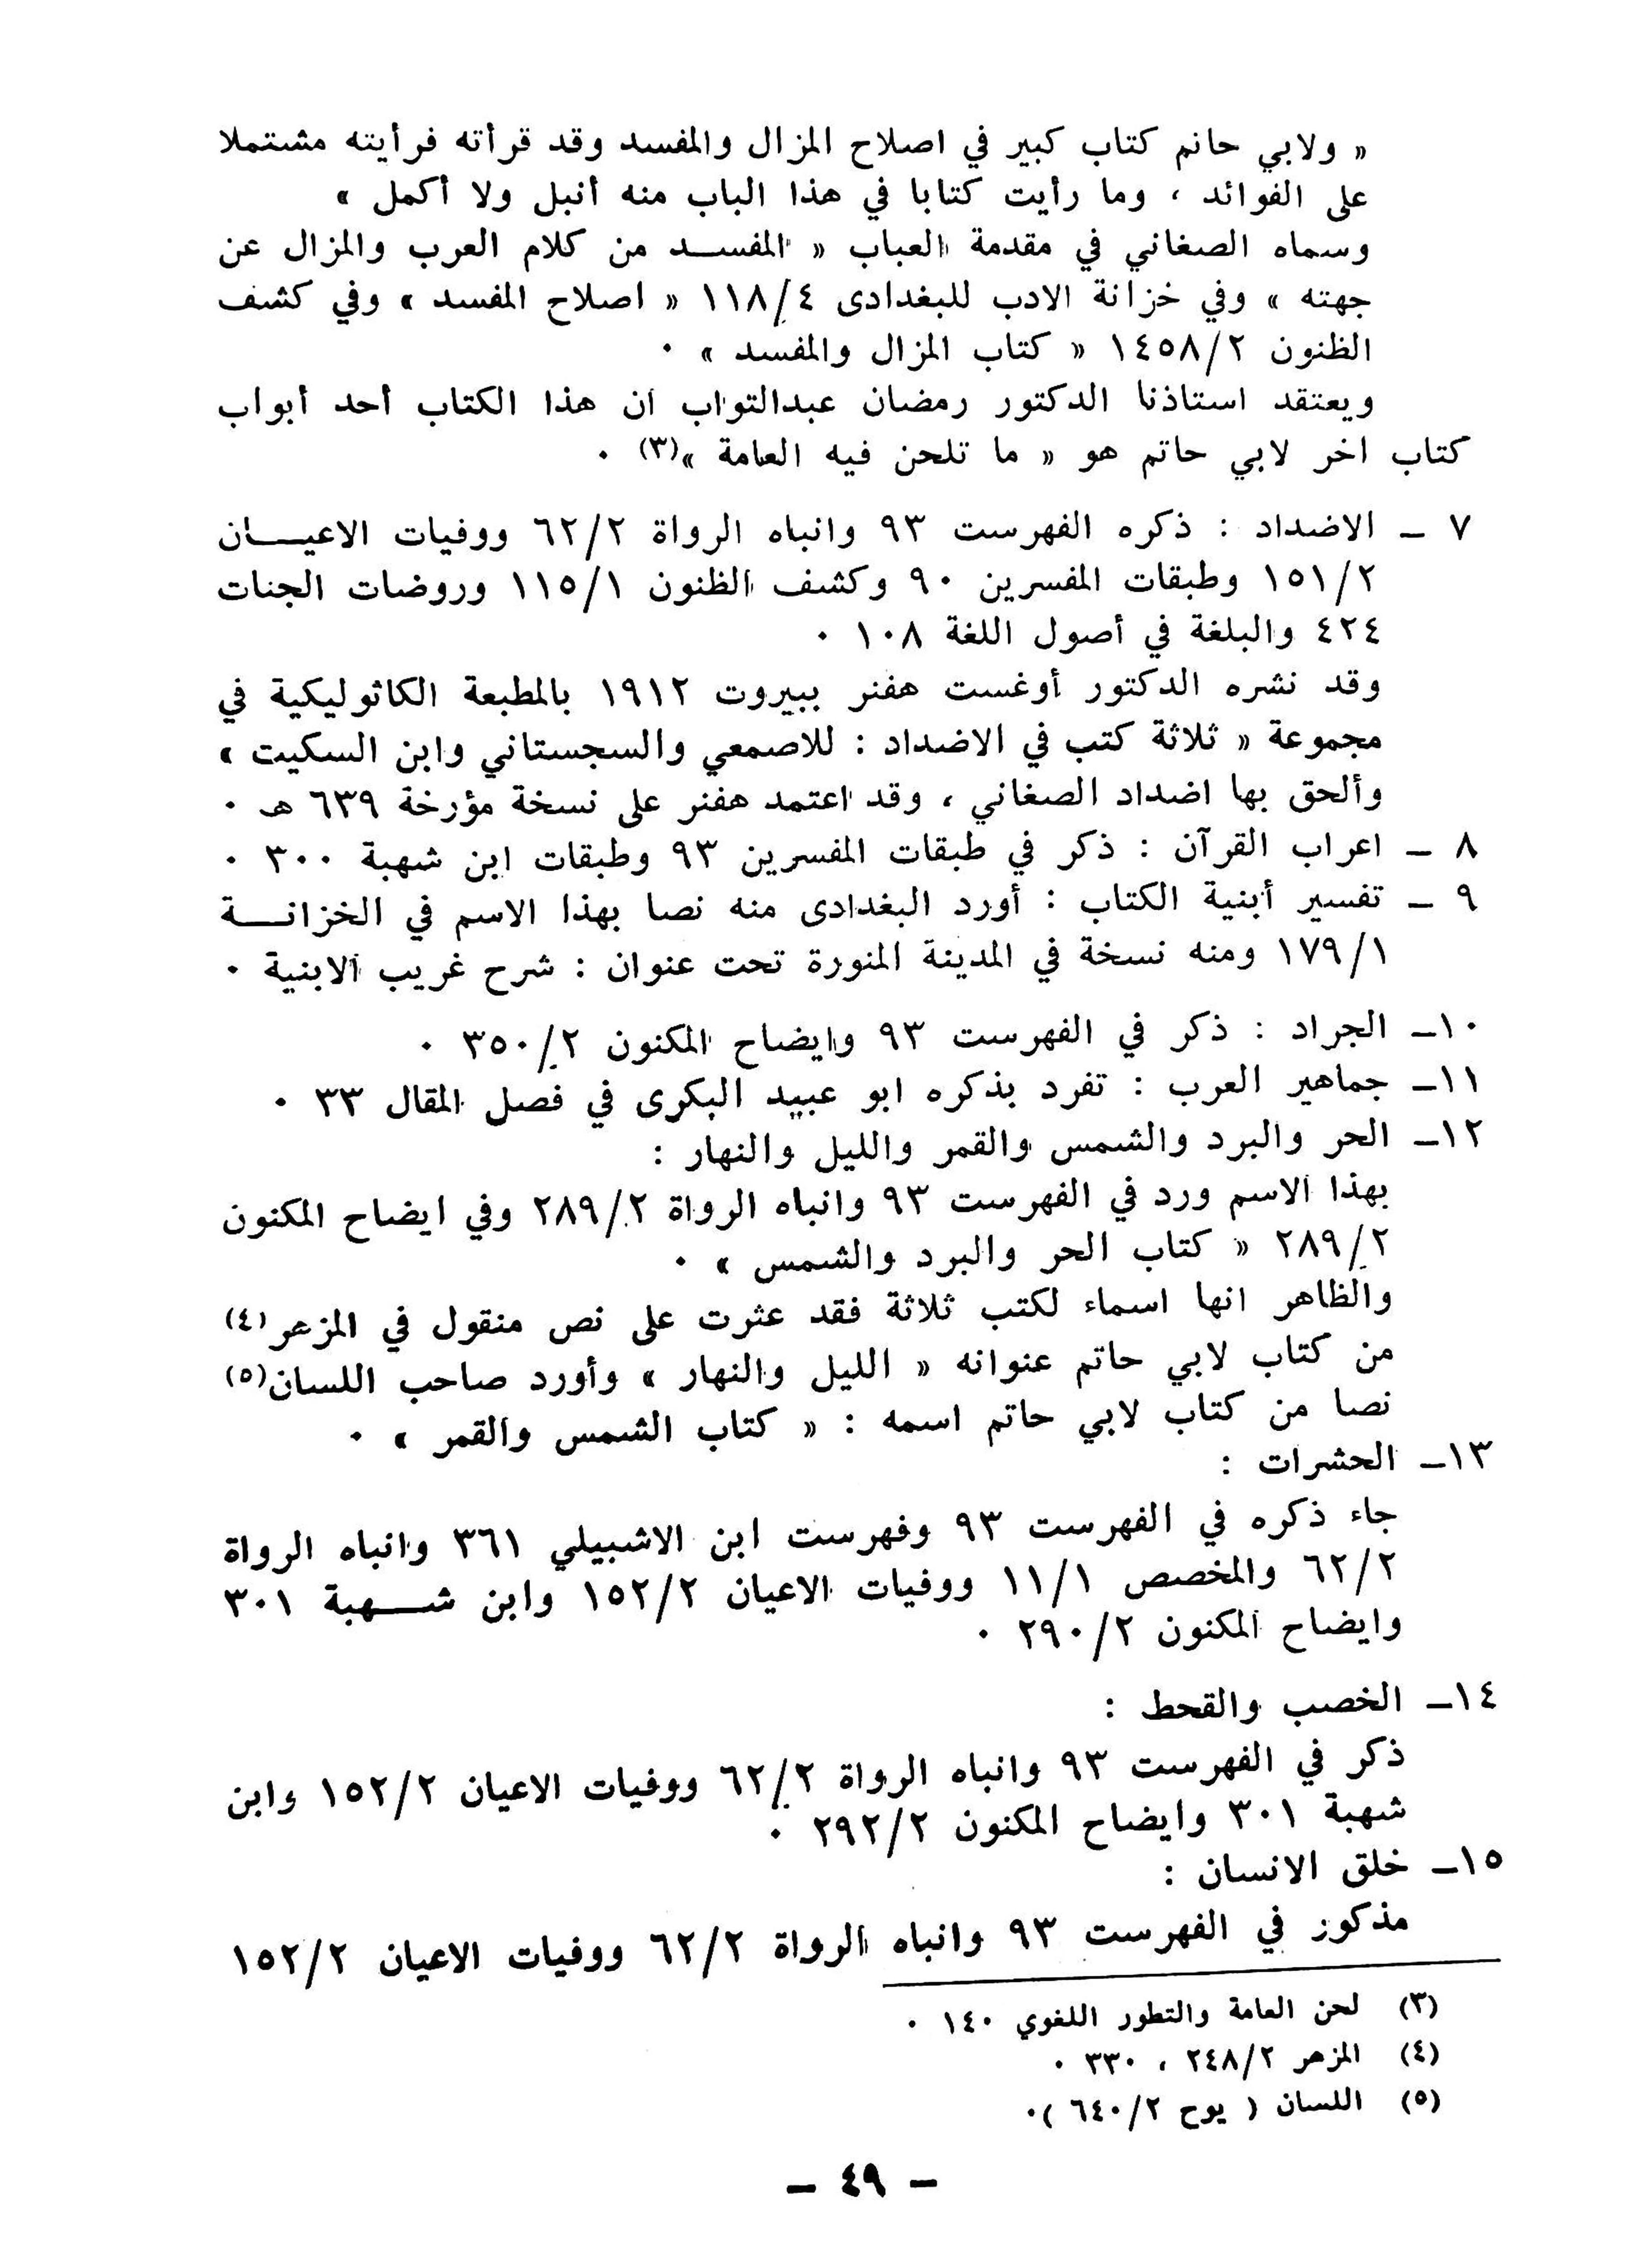 « ولابي حاتم كتاب كبير في اصلاح المزال والمفسد وقد قرأته فرأيته مشتملا
على الفوائد ، وما رأيت كتابا في هذا الباب منه أنبل ولا أكمل »
وسماه الصغاني في مقدمة العباب « المفسد من كلام العرب والمزال عن
جهته » وفي خزانة الادب للبغدادى ١١٨/٤ « اصلاح المفسد » وفي كشف
الظنون ١٤٥٨/٢ « كتاب المزال والمفسد » ٠
ويعتقد استاذنا الدكتور رمضان عبدالتواب ان هذا الكتاب أحد أبواب
كتاب اخر لابي حاتم هو « ما تلحن فيه العامة »(٣) ٠
٧ ــ الاضداد : ذكره الفهرست ٩٣ وانباه الرواة ٦٢/٢ ووفيات الاعيــان
١٥١/٢ وطبقات المفسرين ٩٠ وكشف الظنون ١١٥/١ وروضات الجنات
٤٢٤ والبلغة في أصول اللغة ١٠٨ ٠
وقد نشره الدكتور أوغست هفنر ببيروت ١٩١٢ بالمطبعة الكاثوليكية في
مجموعة « ثلاثة كتب في الاضداد : للاصمعي والسجستاني وابن السكيت »
وألحق بها اضداد الصغاني ، وقد اعتمد هفنر على نسخة مؤرخة ٦٣٩ هـ ٠
٨ ــ اعراب القرآن : ذكر في طبقات المفسرين ٩٣ وطبقات ابن شهبة ٣٠٠ ٠
٩ ــ تفسير أبنية الكتاب : أورد البغدادى منه نصا بهذا الاسم في الخزانــة
١٧٩/١ ومنه نسخة في المدينة المنورة تحت عنوان : شرح غريب الابنية ٠
١٠ــ الجراد : ذكر في الفهرست ٩٣ وايضاح المكنون ٣٥٠/٢ ٠
١١ــ جماهير العرب : تفرد بذكره ابو عبيد البكرى في فصل المقال ٣٣ ٠
١٢ــ الحر والبرد والشمس والقمر والليل والنهار :
بهذا الاسم ورد في الفهرست ٩٣ وانباه الرواة ٢٨٩/٢ وفي ايضاح المكنون
٢٨٩/٢ « كتاب الحر والبرد والشمس » ٠
والظاهر انها اسماء لكتب ثلاثة فقد عثرت على نص منقول في المزهر(٤)
من كتاب لابي حاتم عنوانه « الليل والنهار » وأورد صاحب اللسان(٥)
نصا من كتاب لابي حاتم اسمه : « كتاب الشمس والقمر » ٠
١٣ــ الحشرات :
جاء ذكره في الفهرست ٩٣ وفهرست ابن الاشبيلي ٣٦١ وانباه الرواة
٦٢/٢ والمخصص ١١/١ ووفيات الاعيان ١٥٢/٢ وابن شــهبة ٣٠١
وايضاح المكنون ٢٩٠/٢ ٠
١٤ــ الخصب والقحط :
ذكر في الفهرست ٩٣ وانباه الرواة ٦٢/٢ ووفيات الاعيان ١٥٢/٢ وابن
شهبة ٣٠١ وايضاح المكنون ٢٩٢/٢ ٠
١٥ــ خلق الانسان :
مذكور في الفهرست ٩٣ وانباه الرواة ٦٢/٢ ووفيات الاعيان ١٥٢/٢
(٣) لحن العامة والتطور اللغوي ١٤٠ ٠
(٤) المزهر ٢٤٨/٢ ، ٣٣٠ ٠
(٥) اللسان ( يوح ٦٤٠/٢ )٠
ــ ٤٩ ــ